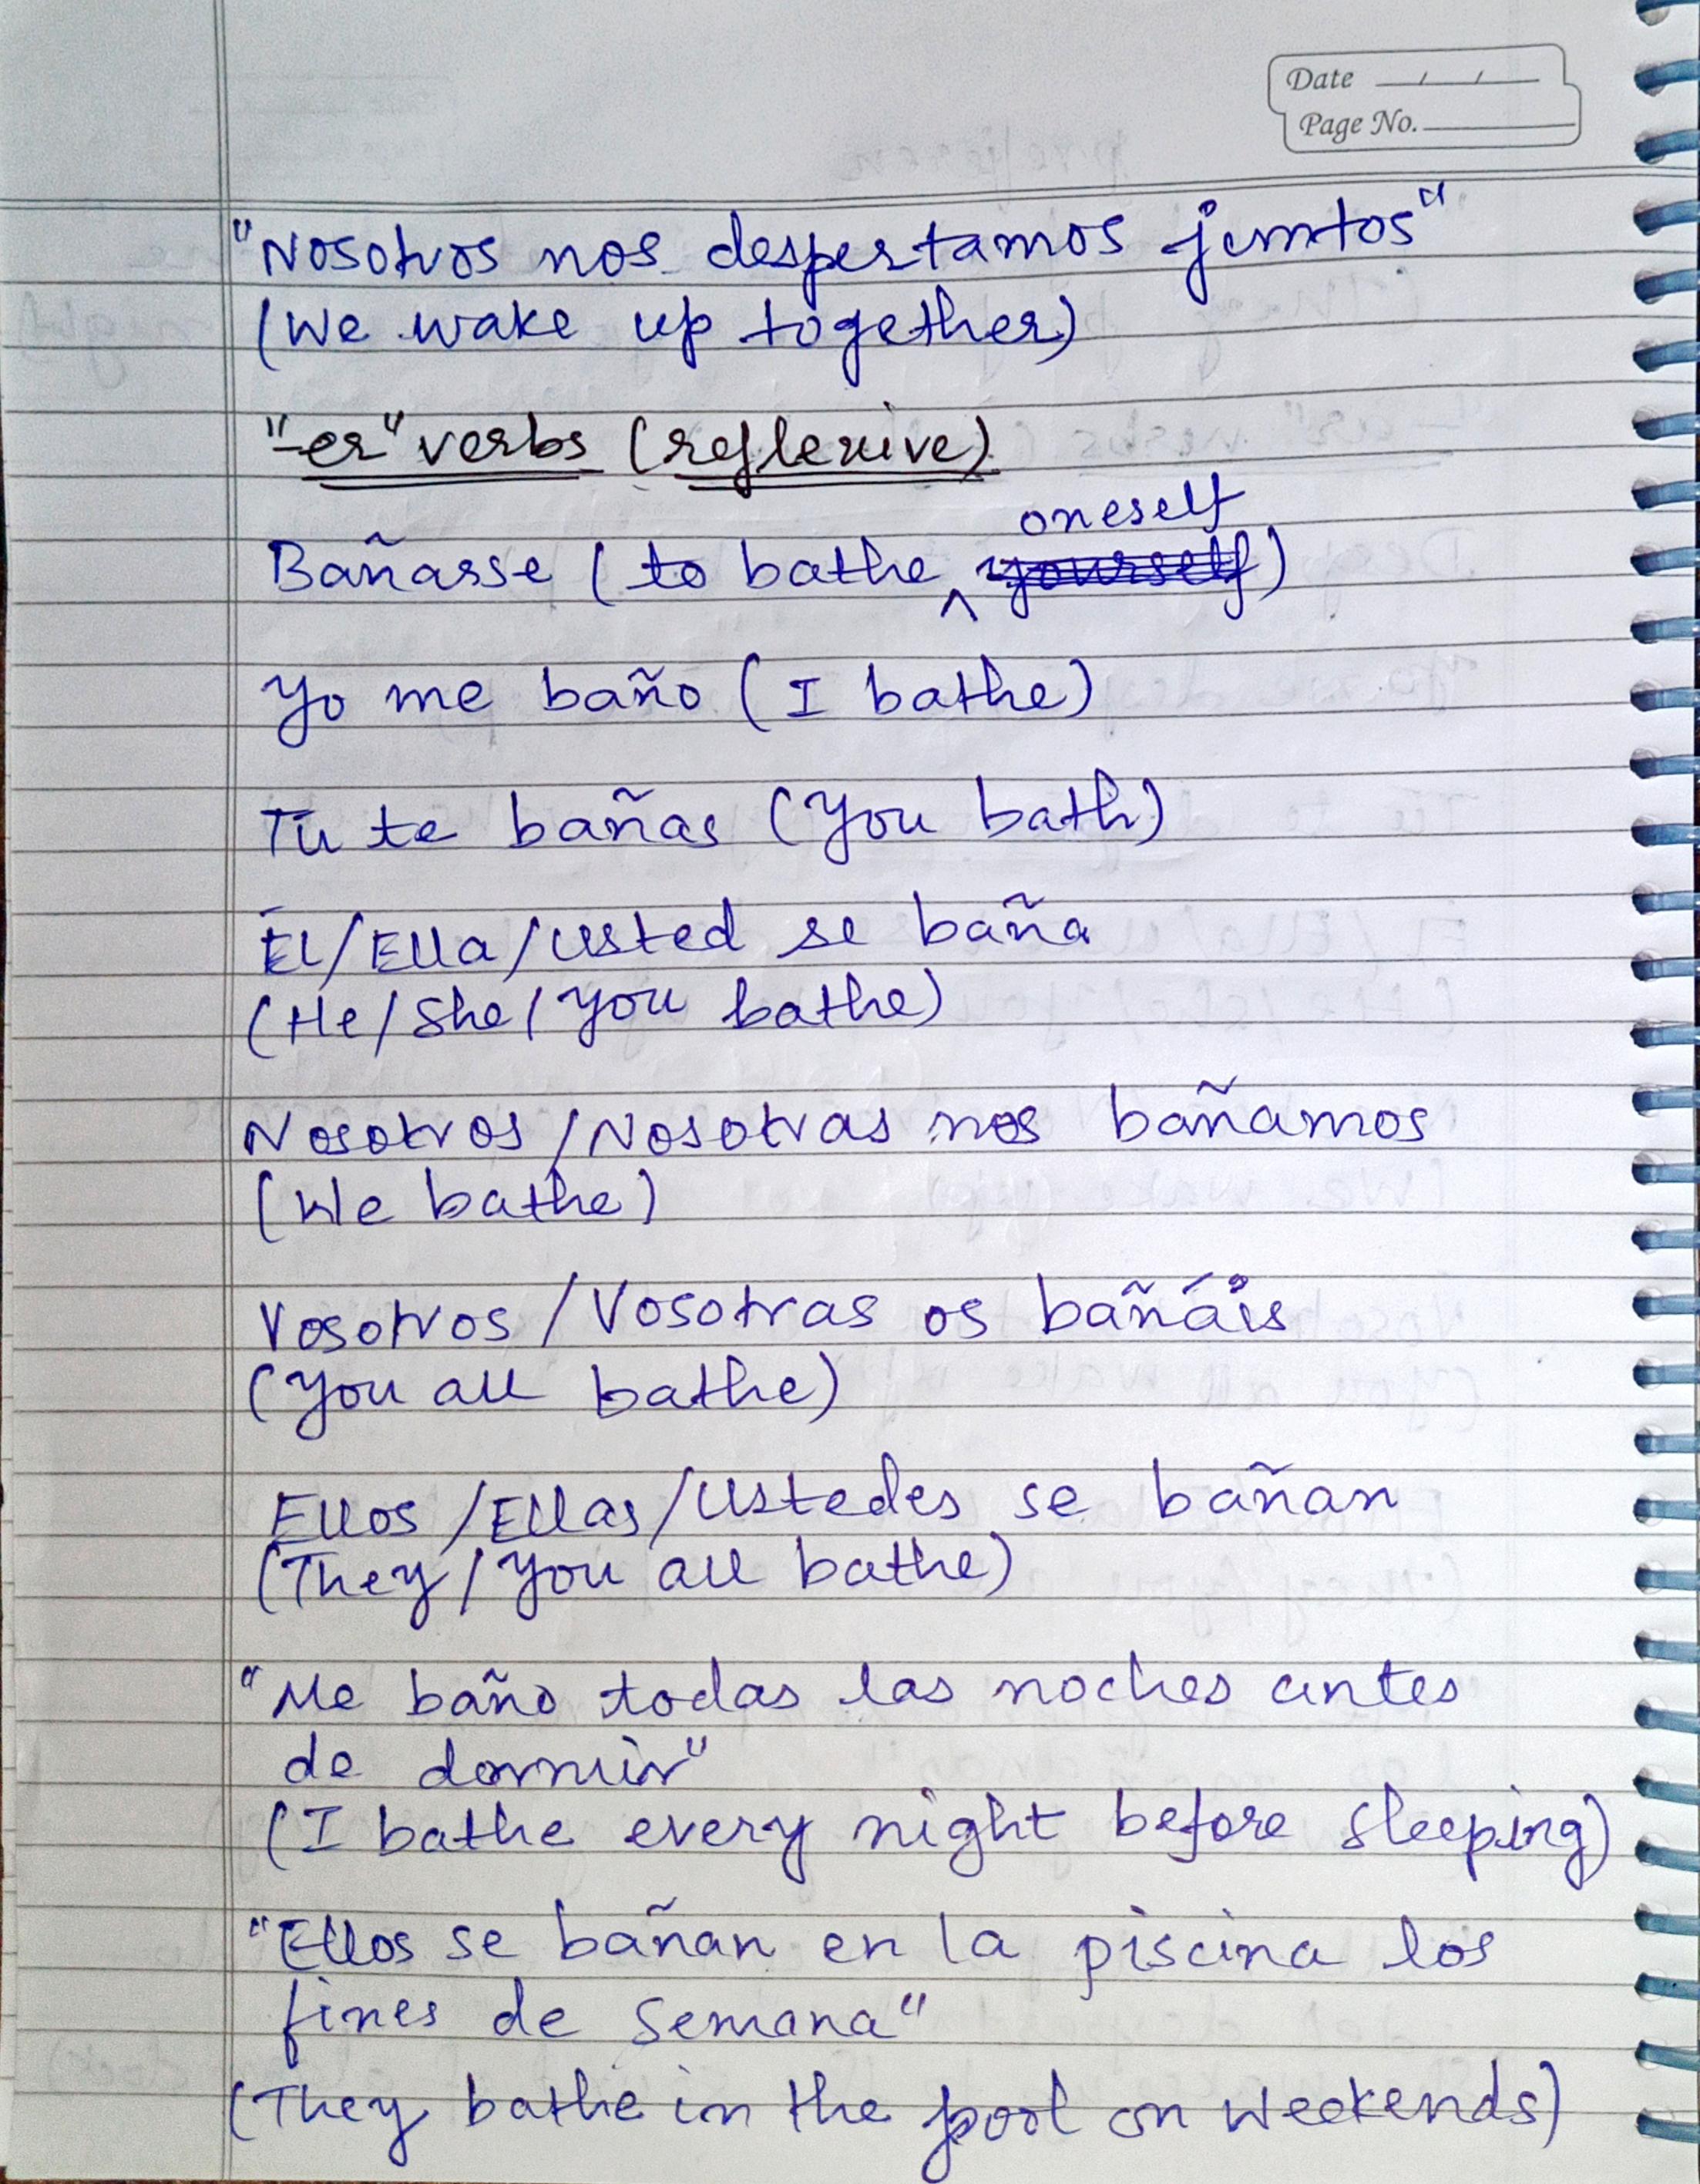 Date
Page No.
"Nosotros nos despertamos juntos"
(We wake up together)
"-er" verbs (reflexive)
oneself
Bañarse (to bathe ^ yourself)
Yo me baño (I bathe)
Tú te bañas (You bath)
Él/Ella/Usted se baña
(He/She/You bathe)
Nosotros/Nosotras nos bañamos
(We bathe)
Vosotros/Vosotras os bañáis
(You all bathe)
Ellos/Ellas/Ustedes se bañan
(They/You all bathe)
"Me baño todas las noches antes
de dormir"
(I bathe every night before sleeping)
"Ellos se bañan en la piscina los
fines de semana"
(They bathe in the pool on weekends)